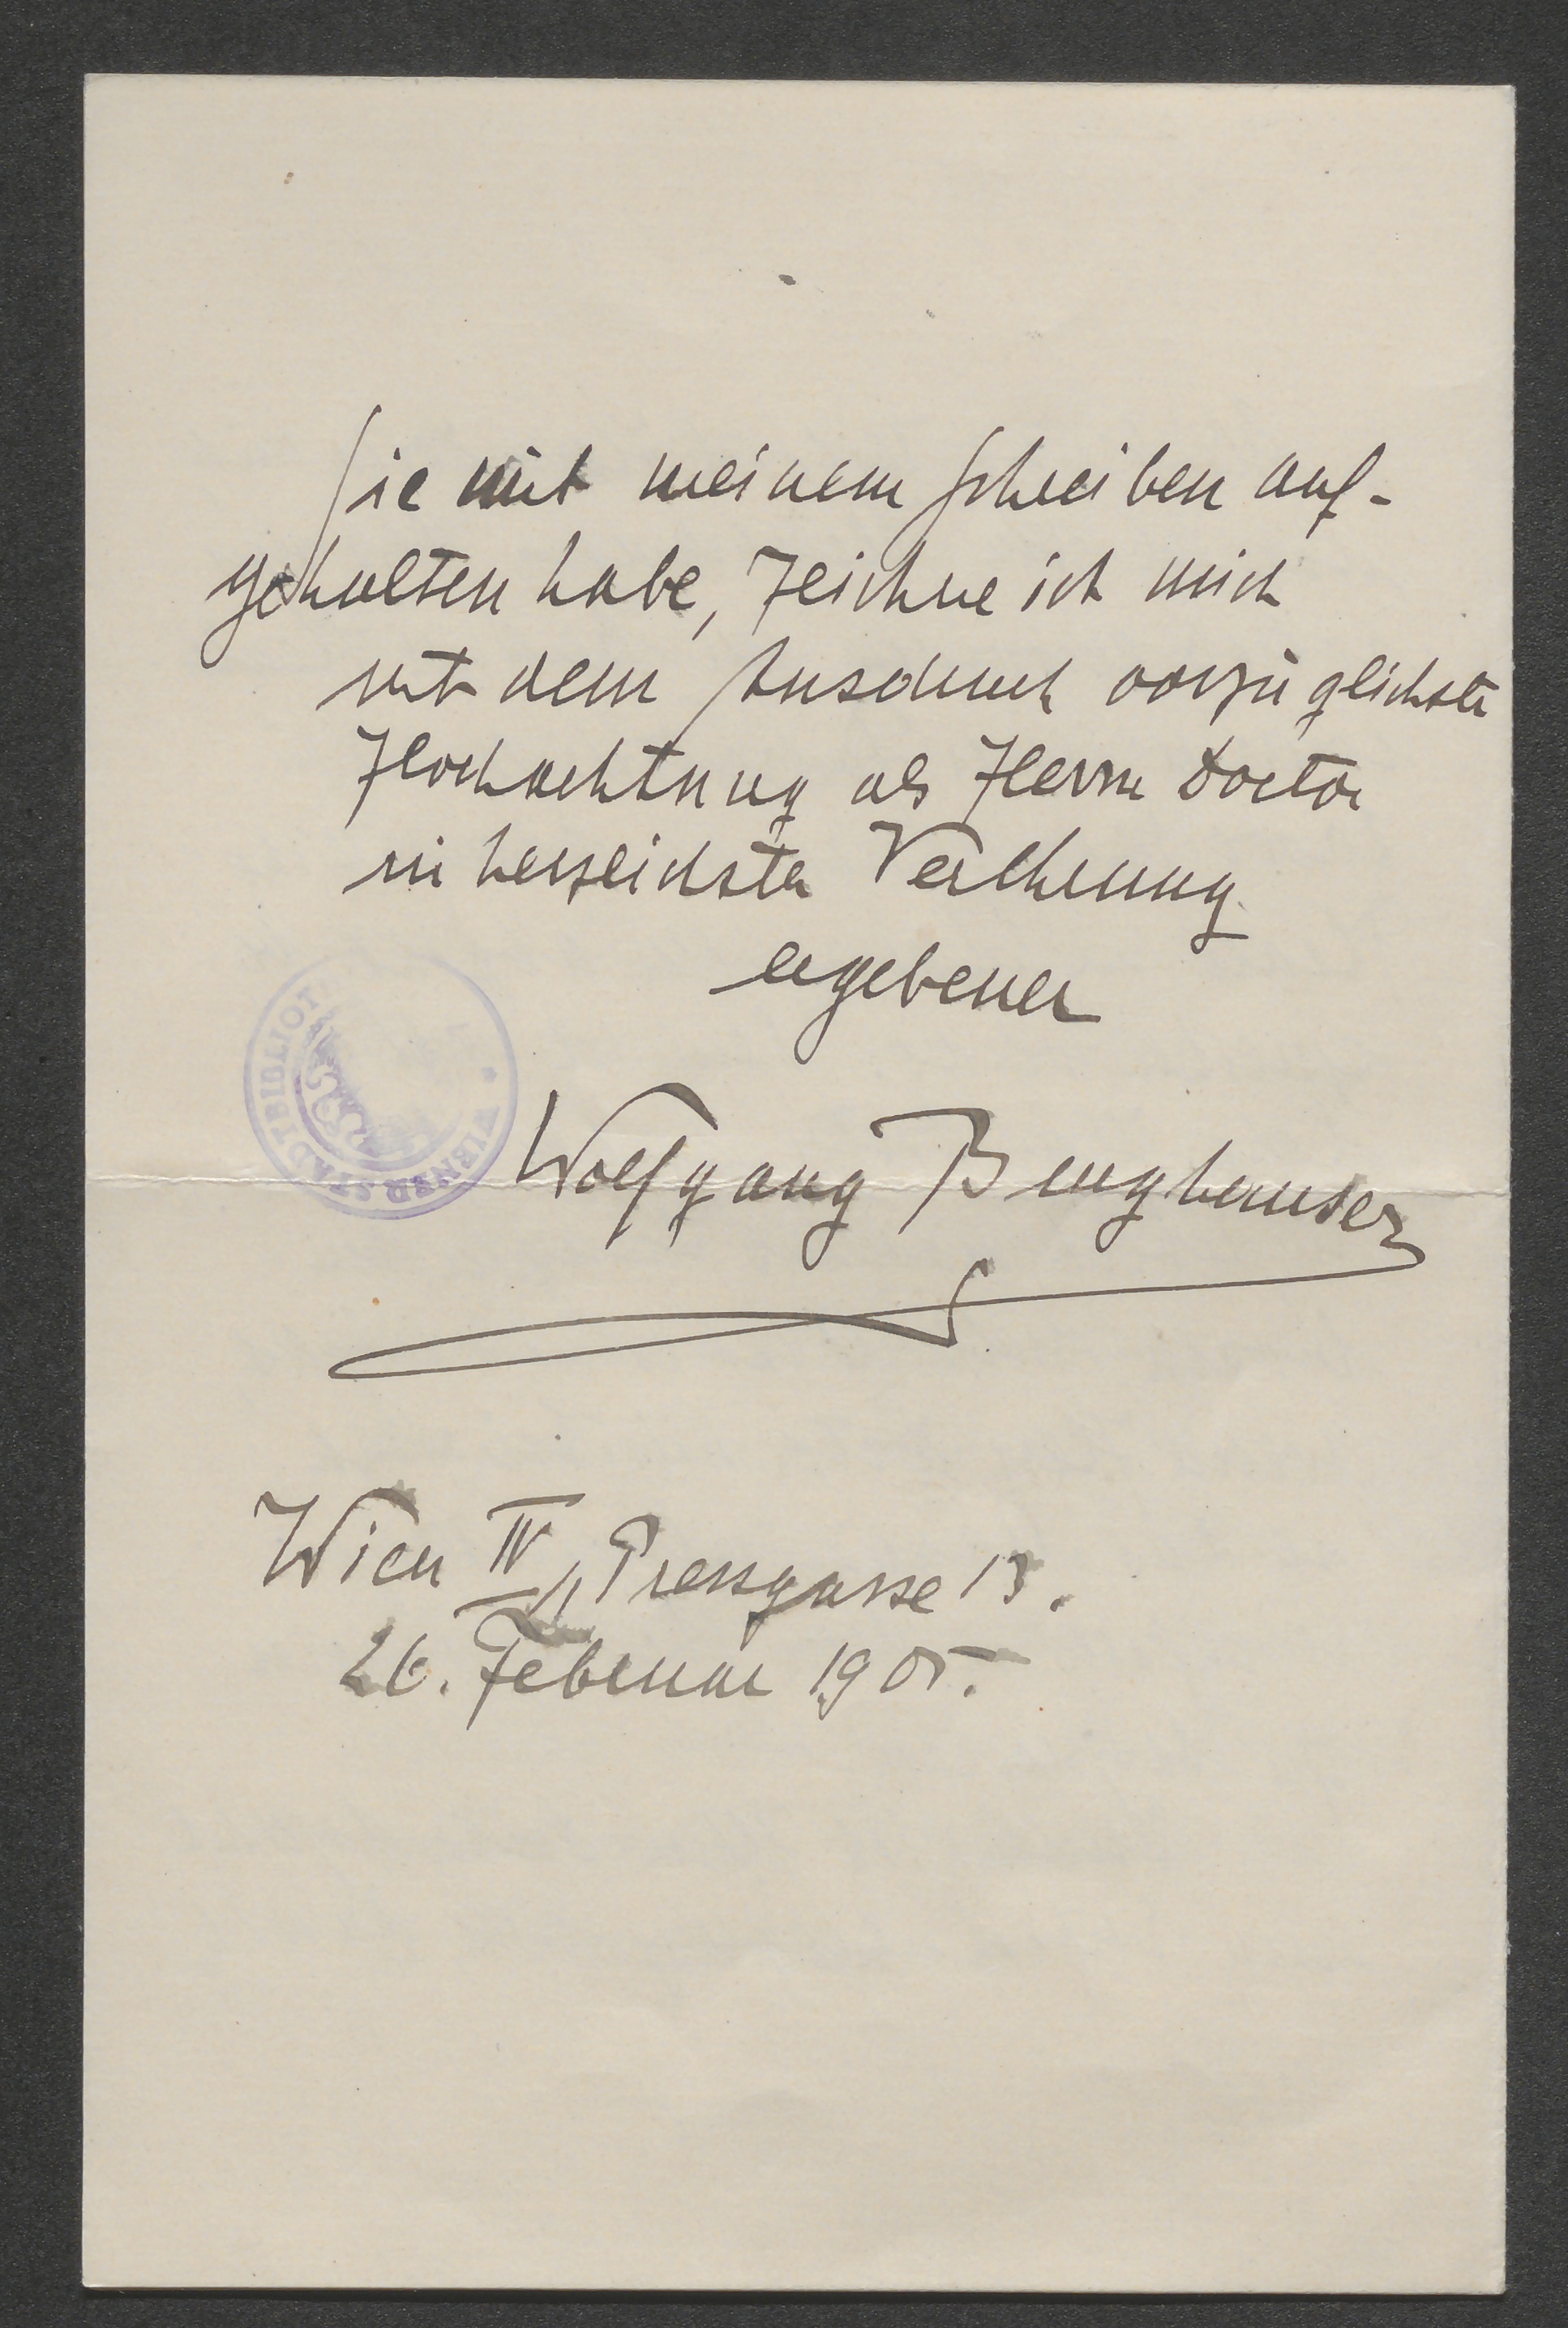 Sie mit meinem Schreiben auf-
gehalten habe, zeichne ich mich
mit dem Ausdruck vorzüglichster
Hochachtung als Herrn Doctor
in herzlichster Verehrung
ergebener
WIENER STADTBIBLIOT
Wolfgang Burghauser
Wien IV/1, Pressgasse 13.
26. Februar 1905.